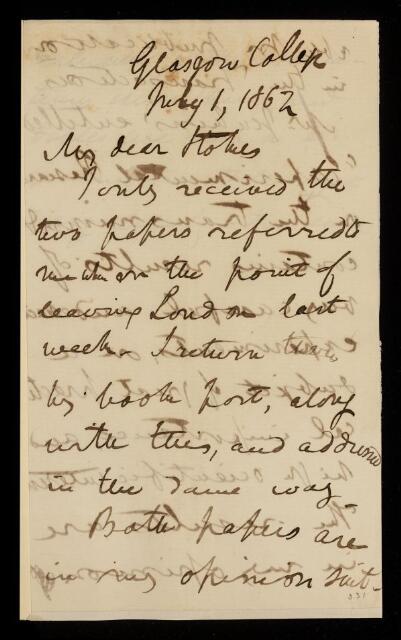 Glasgow College
July 1, 1862
My dear Stokes
I only received the
two papers referred to
me when on the point of
leaving London last
week. I return them
by book post, along
with this, and addressed
in the same way.
Both papers are
in my opinion suit-